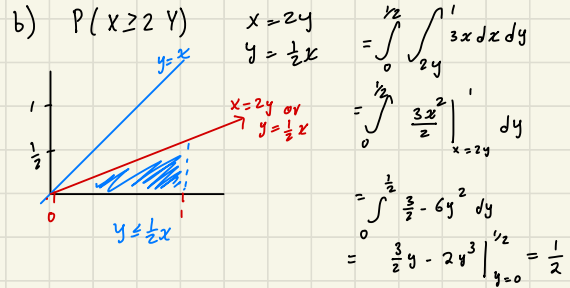 b) P(X ≥ 2Y)
x = 2y
y = ½x
y = x
1
½
x = 2y or
y = ½x
0
1
y ≤ ½x
= ∫₀^{1/2} ∫_{2y}^{1} 3x dx dy
= ∫₀^{1/2} 3x²/2 |_{x=2y}^{1} dy
= ∫₀^{1/2} 3/2 - 6y² dy
= 3/2 y - 2y³ |_{y=0}^{1/2} = 1/2